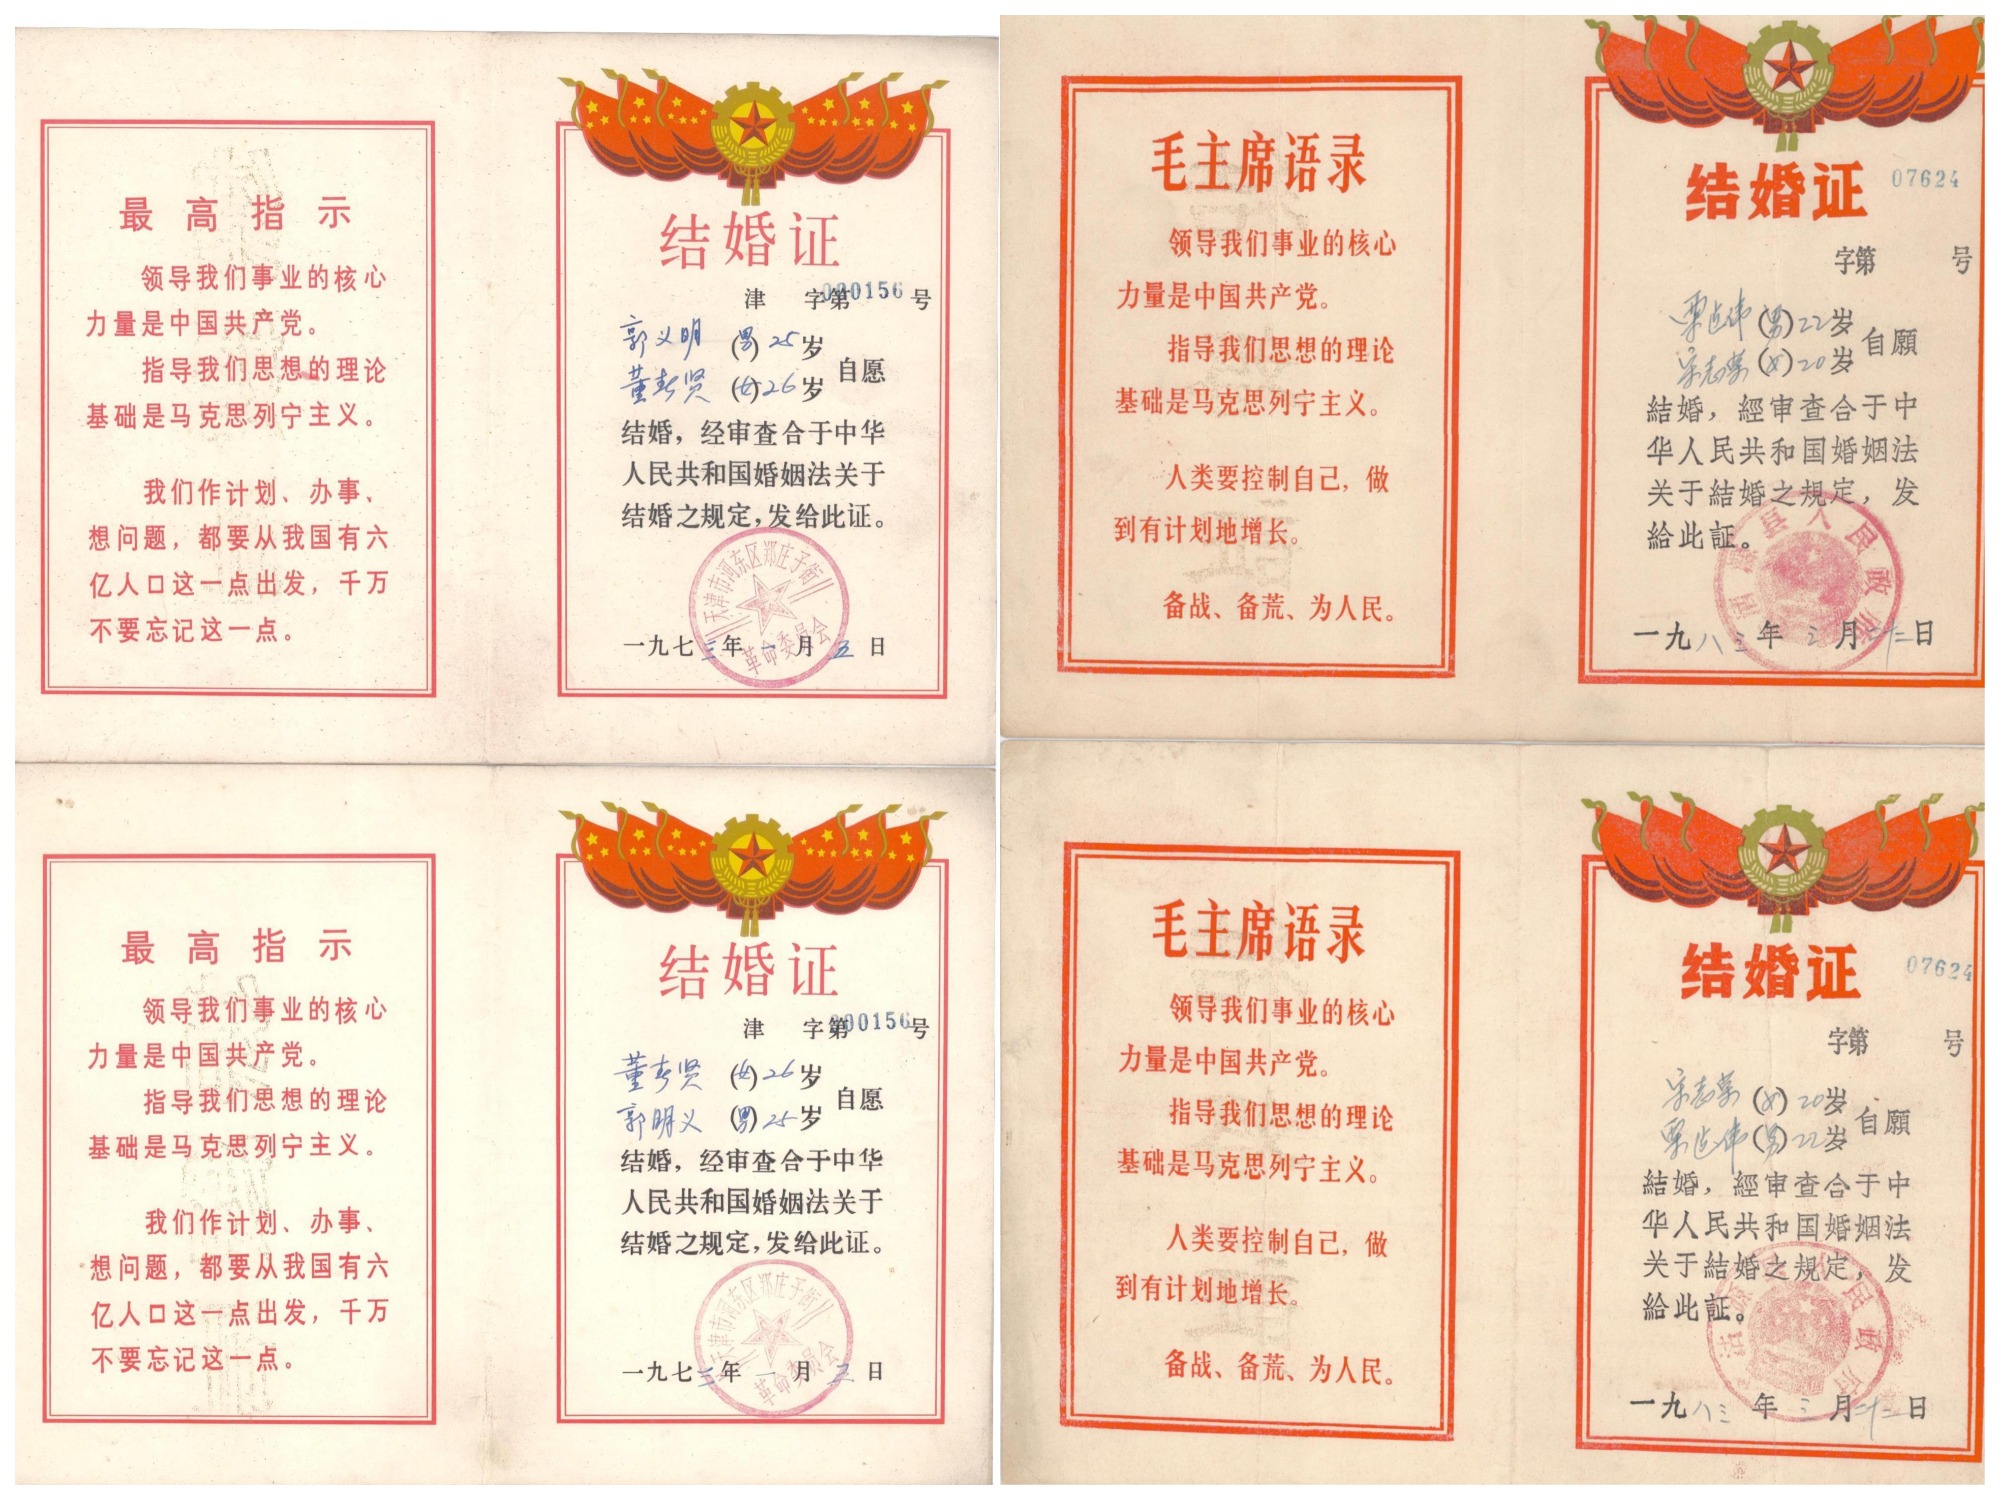 最高指示
领导我们事业的核心
力量是中国共产党。
指导我们思想的理论
基础是马克思列宁主义。
我们作计划、办事、
想问题，都要从我国有六
亿人口这一点出发，千万
不要忘记这一点。
结婚证
津 字第000156号
郭义明 (男) 25岁
董春贤 (女) 26岁
自愿
结婚，经审查合于中华
人民共和国婚姻法关于
结婚之规定，发给此证。
天津市河东区郑庄子街
革命委员会
一九七三年一月五日
毛主席语录
领导我们事业的核心
力量是中国共产党。
指导我们思想的理论
基础是马克思列宁主义。
人类要控制自己，做
到有计划地增长。
备战、备荒、为人民。
结婚证
07624
字第 号
(男) 22岁
宋志荣 (女) 20岁
自願
結婚，經審查合于中
华人民共和国婚姻法
关于結婚之規定，发
給此証。
县人民政府
一九八三年三月二十二日
最高指示
领导我们事业的核心
力量是中国共产党。
指导我们思想的理论
基础是马克思列宁主义。
我们作计划、办事、
想问题，都要从我国有六
亿人口这一点出发，千万
不要忘记这一点。
结婚证
津 字第000156号
董春贤 (女) 26岁
郭明义 (男) 25岁
自愿
结婚，经审查合于中华
人民共和国婚姻法关于
结婚之规定，发给此证。
天津市河东区郑庄子街
革命委员会
一九七三年一月五日
毛主席语录
领导我们事业的核心
力量是中国共产党。
指导我们思想的理论
基础是马克思列宁主义。
人类要控制自己，做
到有计划地增长。
备战、备荒、为人民。
结婚证
07624
字第 号
宋志荣 (女) 20岁
(男) 22岁
自願
結婚，經審查合于中
华人民共和国婚姻法
关于結婚之規定，发
給此証。
民政府
一九八三年三月二十二日